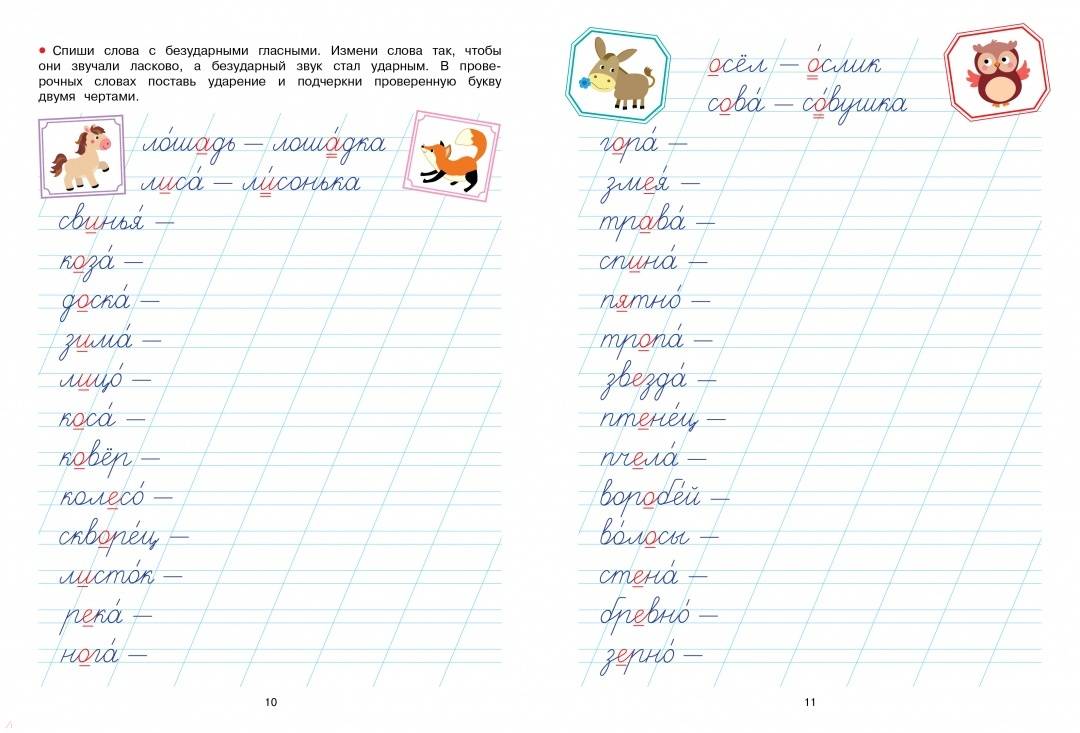 • Спиши слова с безударными гласными. Измени слова так, чтобы
они звучали ласково, а безударный звук стал ударным. В прове-
рочных словах поставь ударение и подчеркни проверенную букву
двумя чертами.
ло́шадь — лоша́дка
лиса́ — ли́сонька
свинья́ —
коза́ —
доска́ —
зима́ —
лицо́ —
коса́ —
ковёр —
колесо́ —
скворе́ц —
листо́к —
река́ —
нога́ —
10
осёл — о́слик
сова́ — со́вушка
гора́ —
змея́ —
трава́ —
спина́ —
пятно́ —
тропа́ —
звезда́ —
птене́ц —
пчела́ —
воробе́й —
во́лосы —
стена́ —
бревно́ —
зерно́ —
11